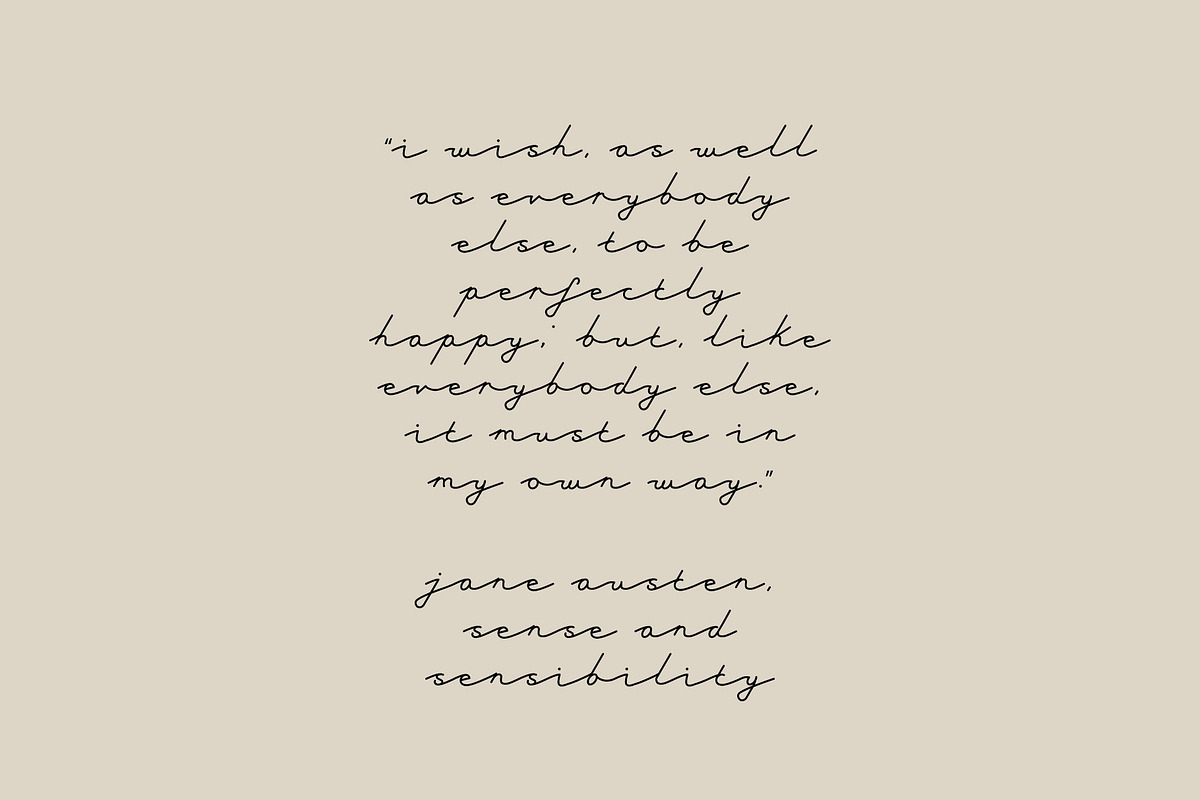 "i wish, as well
as everybody
else, to be
perfectly
happy; but, like
everybody else,
it must be in
my own way."
jane austen,
sense and
sensibility